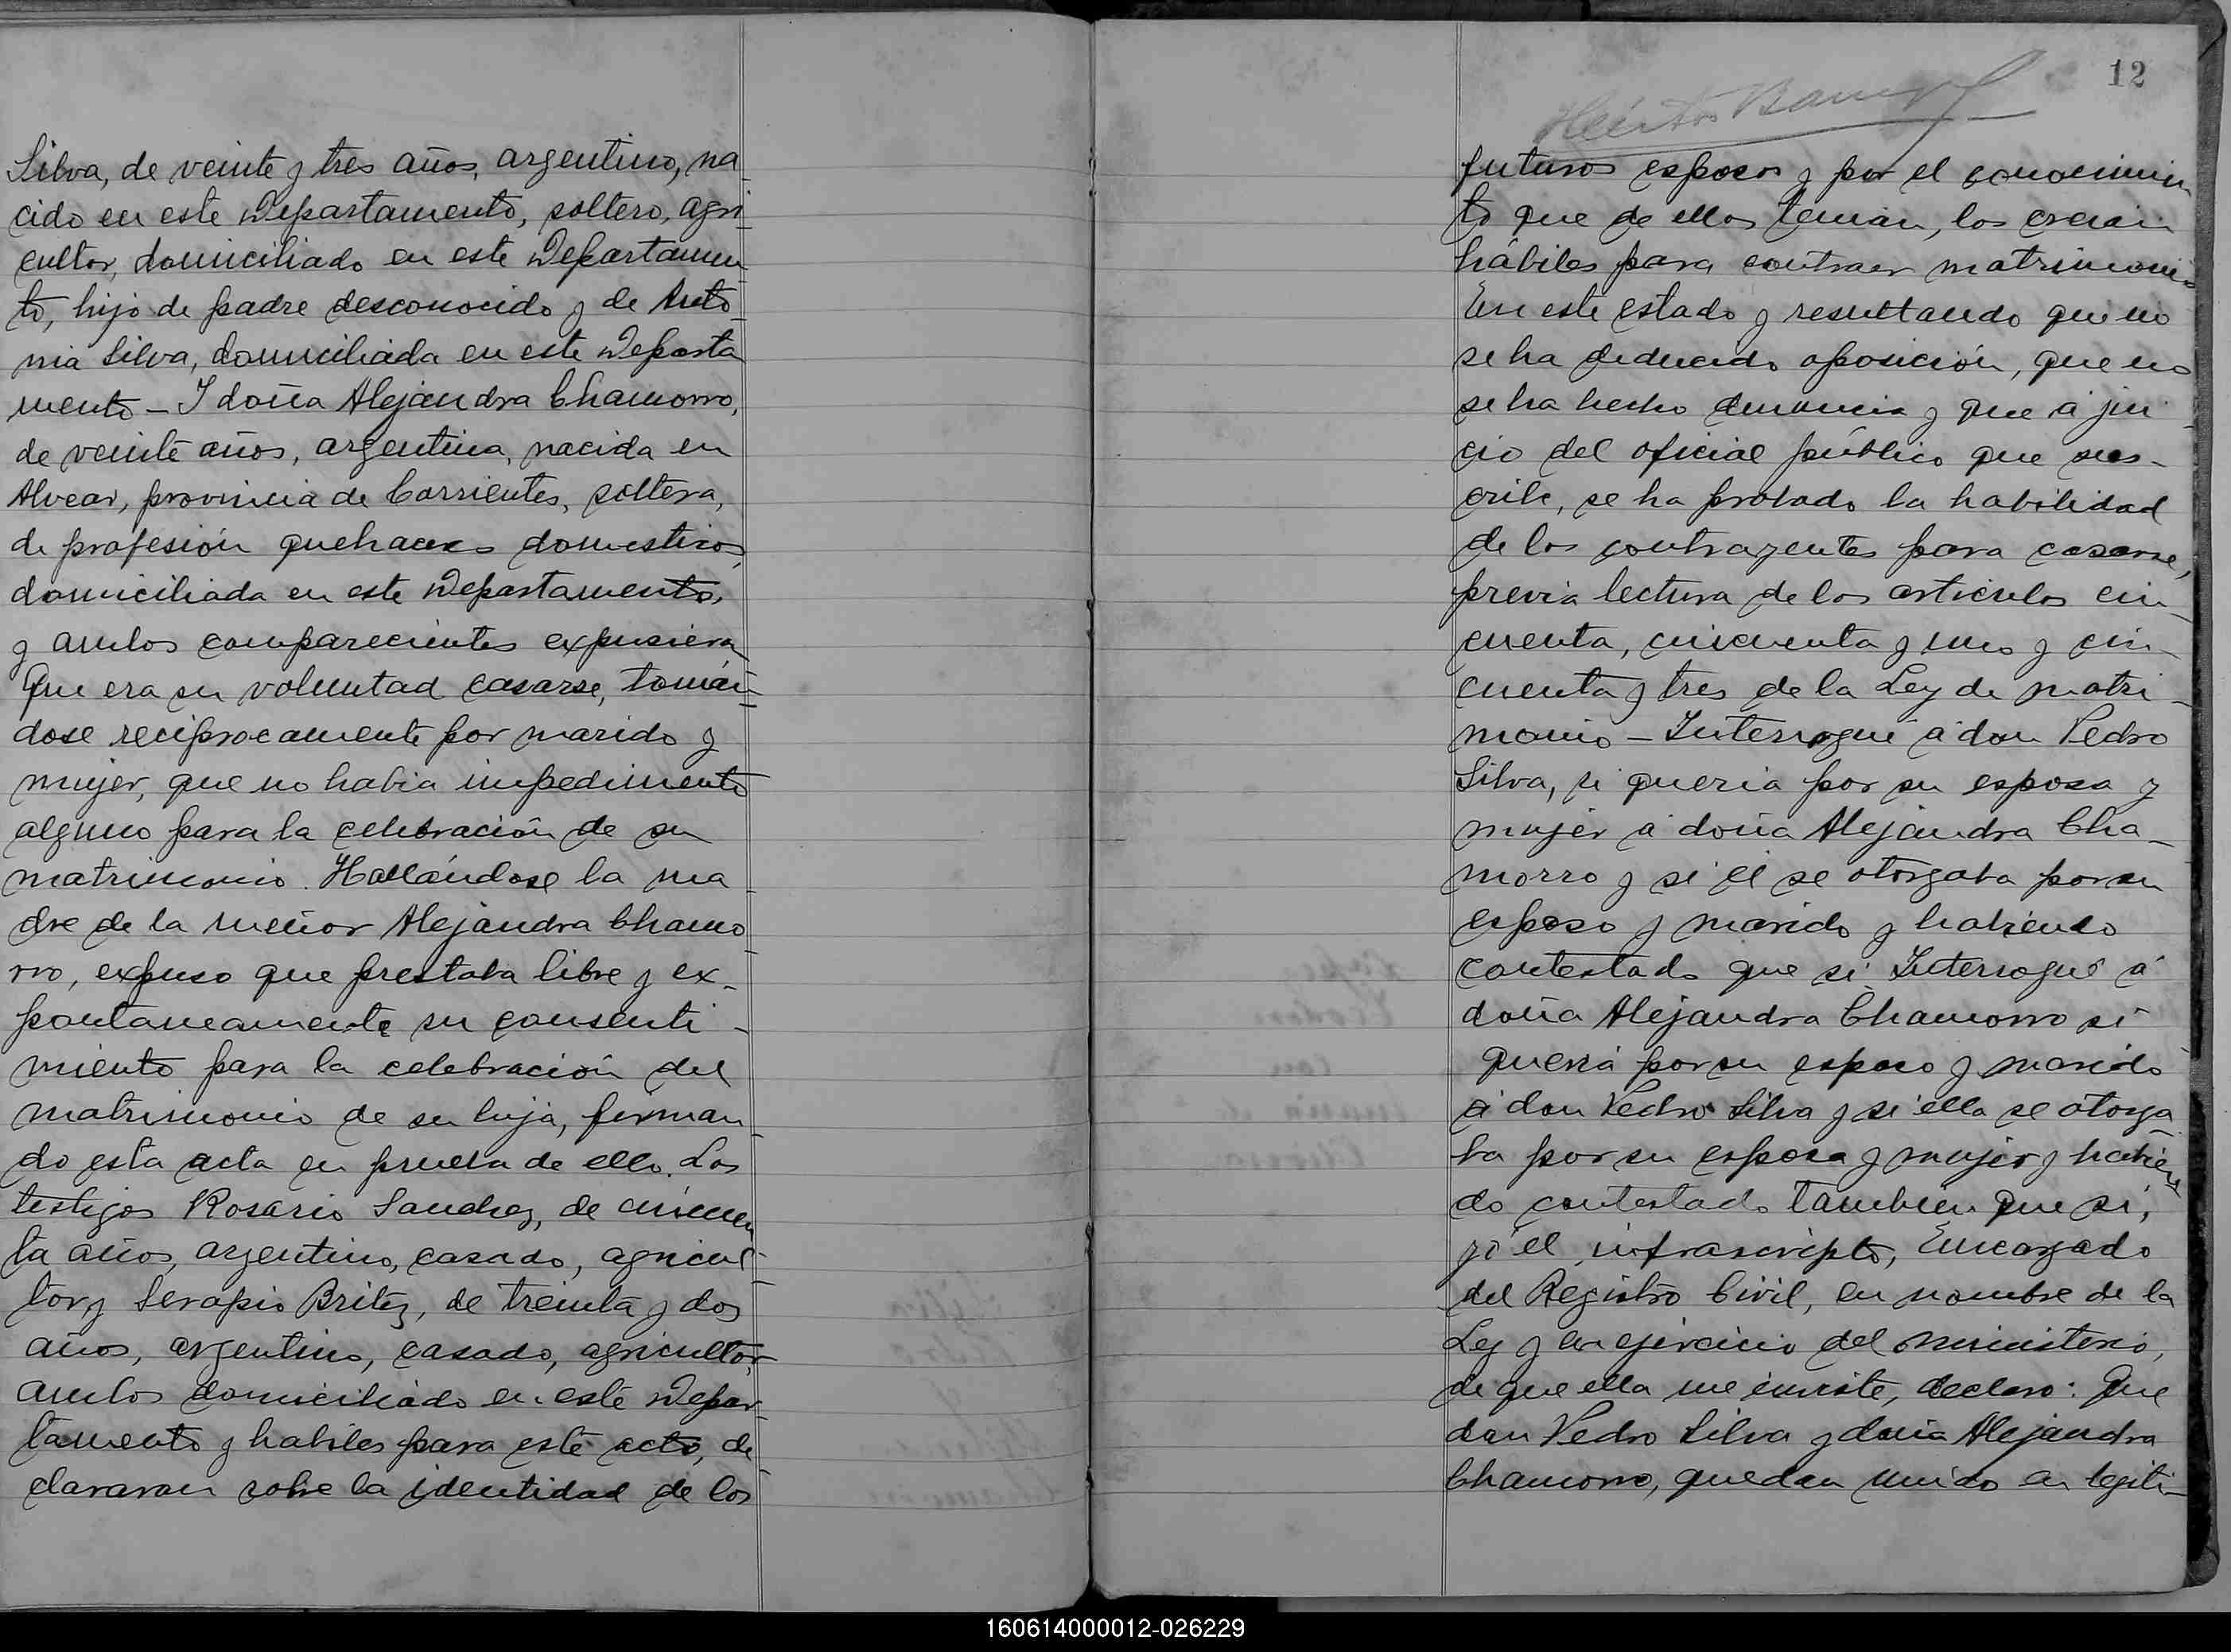 Silva, de veinte y tres años, argentino, na_
cido en este Departamento, soltero, agri_
cultor, domiciliado en este Departamen_
to, hijo de padre desconocido y de Anto_
nia Silva, domiciliada en este Departa
mento - I doña Alejandra Chamorro,
de veinte años, argentina, nacida en
Alvear, provincia de Corrientes, soltera,
de profesión quehaceres domesticos,
domiciliada en este Departamento,
y ambos comparecientes expusieron
Que era su voluntad casarse, tomán_
dose reciprocamente por marido y
mujer, que no habia impedimento
alguno para la celebración de su
matrimonio. Hallándose la ma_
dre de la menor Alejandra Chamo_
rro, expuso que prestaba libre y ex_
pontaneamente su consenti_
miento para la celebración del
matrimonio de su hija, firman_
do esta acta en prueba de ello. Los
testigos Rosario Sanchez, de cincuen
ta años, argentino, casado, agricul_
tor y Serapio Britez, de treinta y dos
años, argentino, casado, agricultor,
ambos domiciliado en este Depar_
tamento y habiles para este acto, de_
clararon sobre la identidad de los
12
Héctor
futuros esposos y por el conocimien
to que de ellos tenian, los creian
hábiles para contraer matrimonio
En este estado y resultando que no
se ha deducido oposición, que no
se ha hecho denuncia y que á jui_
cio del oficial público que sus_
cribe, se ha probado la habilidad
de los contrayentes para casarse,
previa lectura de los articulos cin_
cuenta, cincuenta y uno y cin_
cuenta y tres de la Ley de matri_
monio - Interrogué á don Pedro
Silva, si queria por su esposa y
mujer á doña Alejandra Cha_
morro y si él se otorgaba por su
esposo y marido y habiendo
contestado que si. Interrogué á
doña Alejandra Chamorro si
queria por su esposo y marido
á don Pedro Silva y si ella se otorga_
ba por su esposa y mujer y habien
do contestado tambien que si,
yo el infrascripto, Encargado
del Registro Civil, en nombre de la
Ley y en ejercicio del ministerio,
de que ella me inviste, declaro: Que
don Pedro Silva y doña Alejandra
Chamorro, quedan unido en legiti_
160614000012-026229